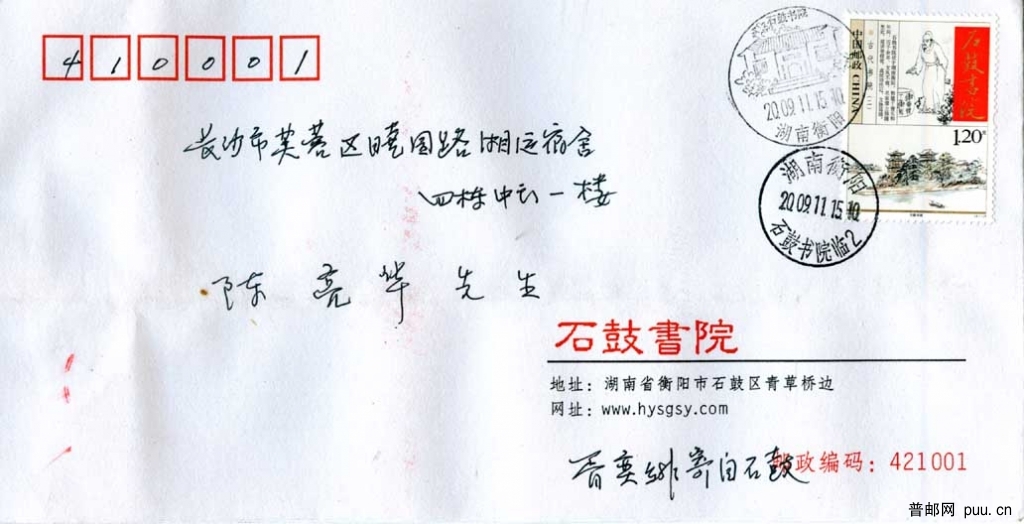 410001
长沙市芙蓉区晓园路湘运宿舍
四栋中 一楼
陈亮华先生
石鼓书院
湖南衡阳
2009.11.15.10
湖南衡阳
2009.11.15.10
石鼓书院临2
中国邮政 CHINA
古代书院(二)
石鼓书院
1.20元
石鼓書院
地址：湖南省衡阳市石鼓区青草桥边
网址：www.hysgsy.com
邮政编码：421001
寄自石鼓
普邮网 puu.cn